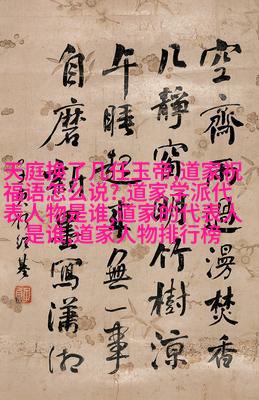 空齋雨過漫焚香
几靜窗明竹樹涼
午睡起來無一事
自磨新墨寫瀟湘
天庭换了几任玉帝,道家祝
福语怎么说?,道家学派代
表人物是谁,道家的代表人
是谁,道家人物排行榜